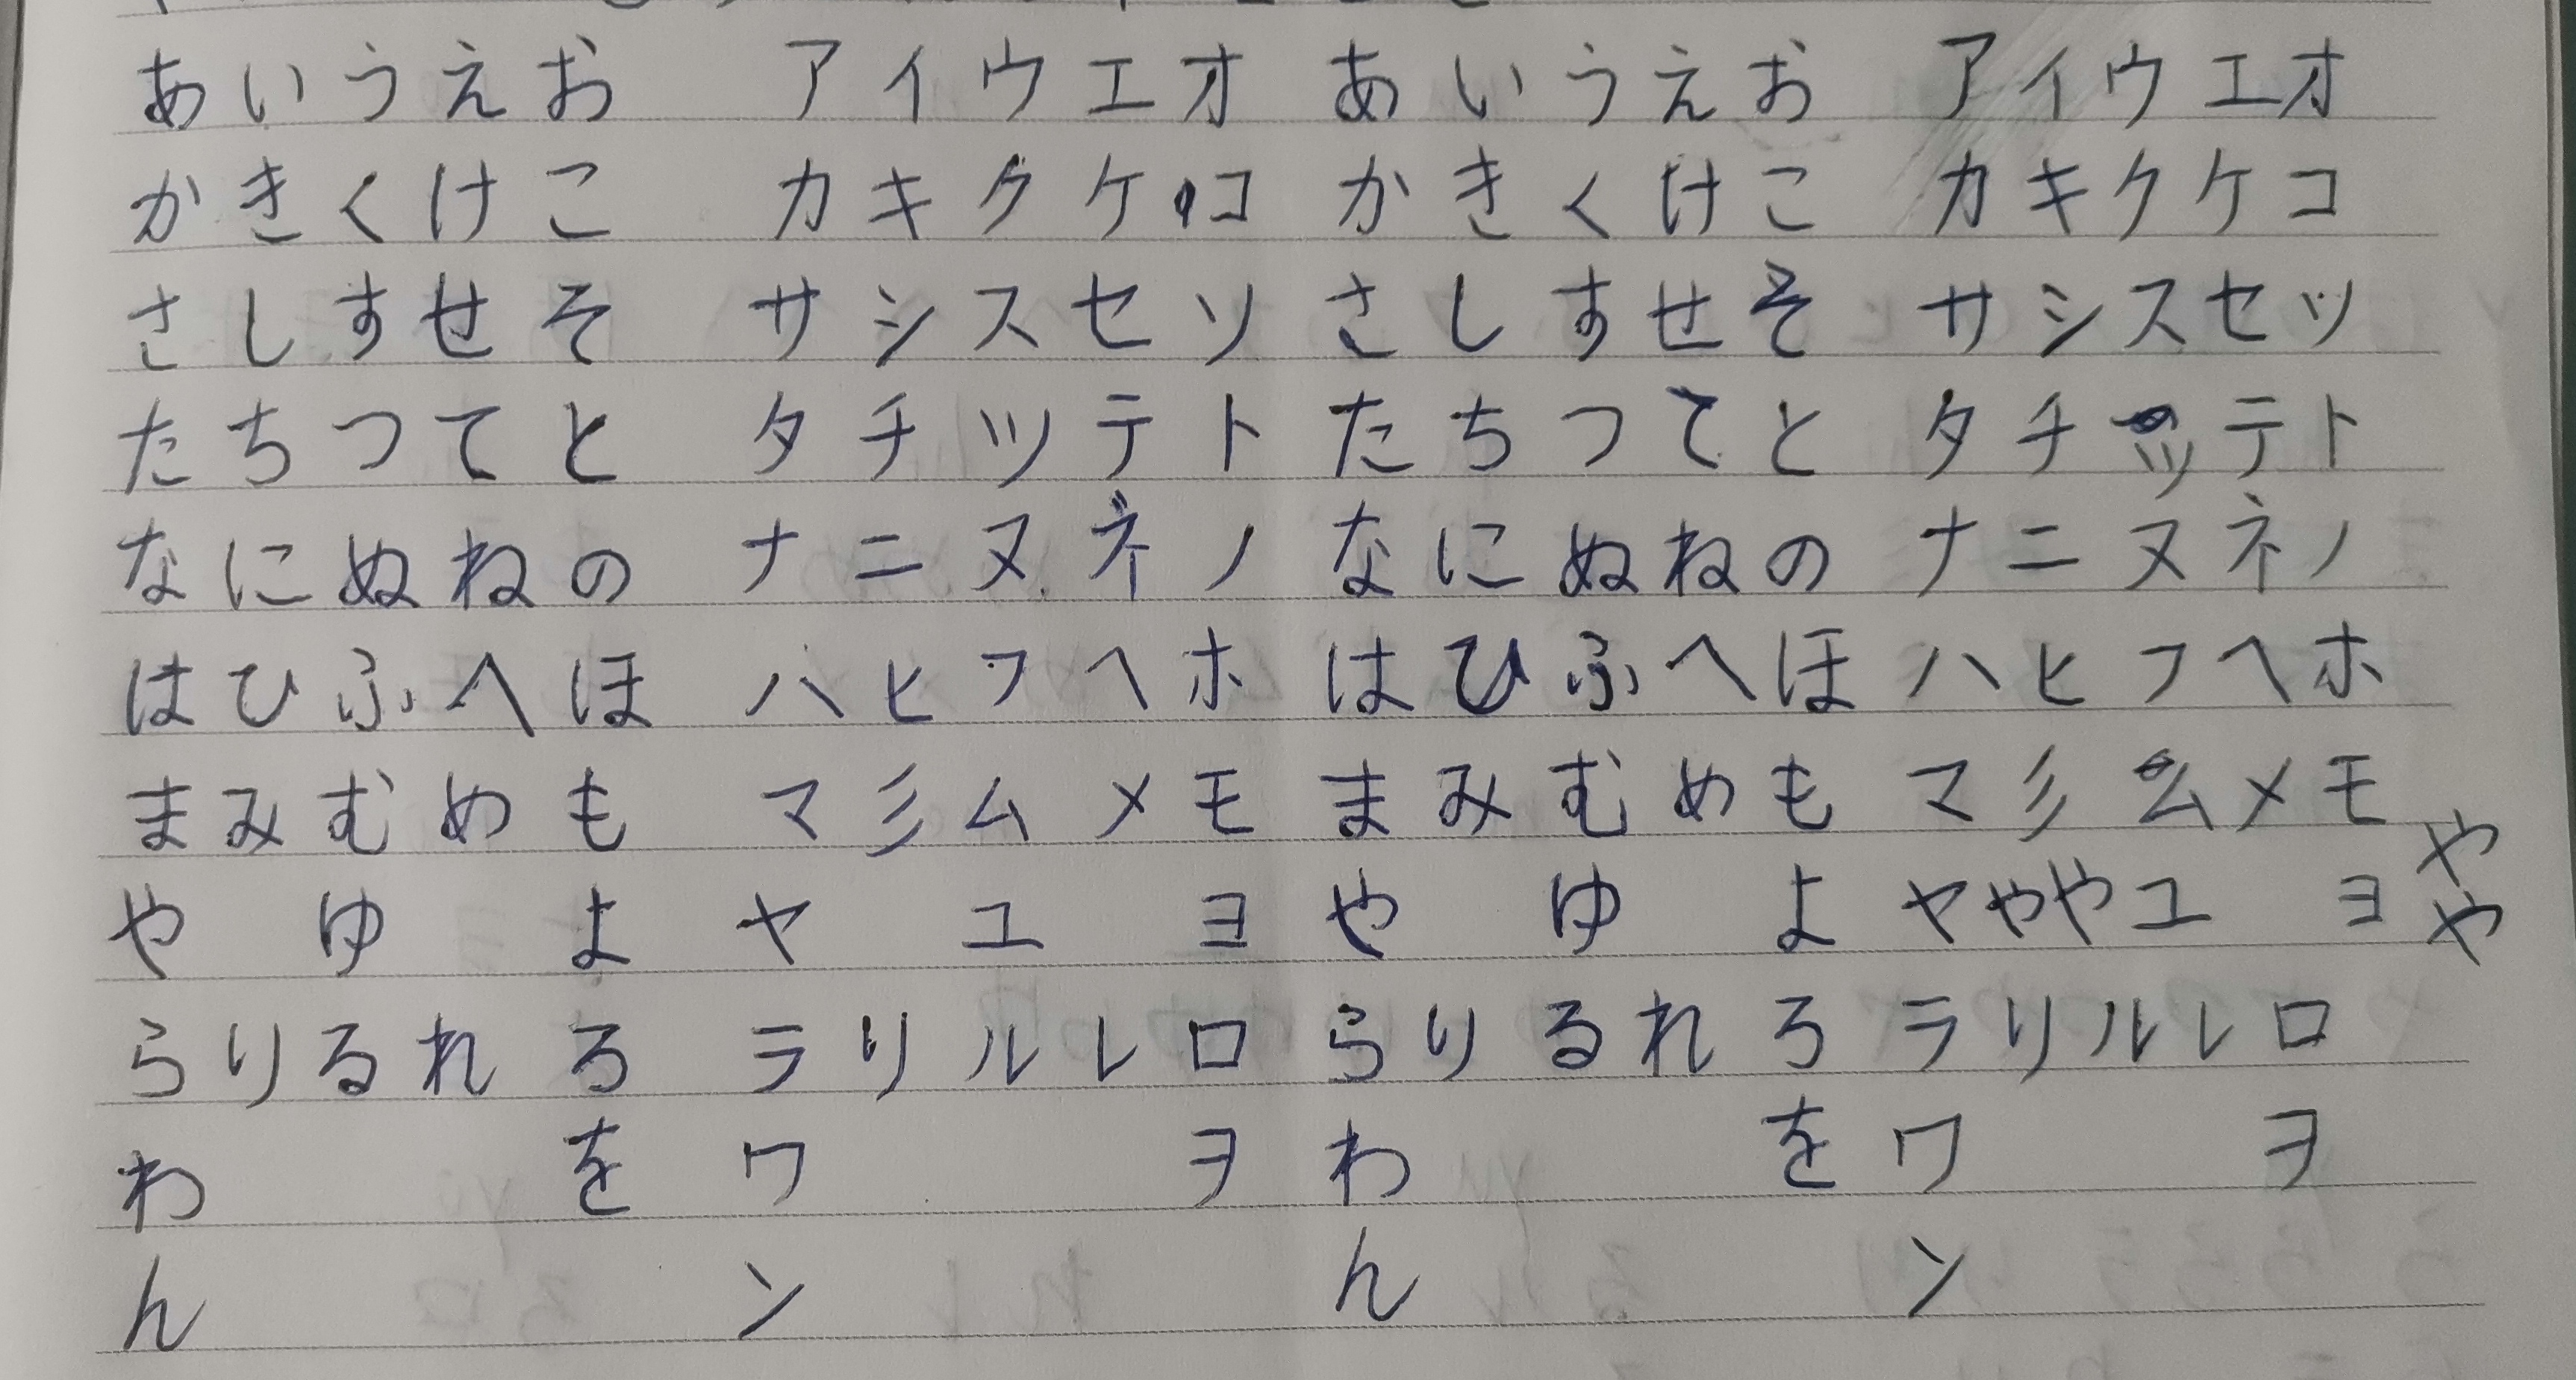 あいうえお アイウエオ あいうえお アイウエオ
かきくけこ カキクケコ かきくけこ カキクケコ
さしすせそ サシスセソ さしすせそ サシスセソ
たちつてと タチツテト たちつてと タチツテト
なにぬねの ナニヌネノ なにぬねの ナニヌネノ
はひふへほ ハヒフヘホ はひふへほ ハヒフヘホ
まみむめも マミムメモ まみむめも マミムメモ や
や ゆ よ ヤ ユ ヨ や ゆ よ ヤややユ ヨ や
らりるれろ ラリルレロ らりるれろ ラリルレロ
わ を ワ ヲ わ を ワ ヲ
ん ン ん ン